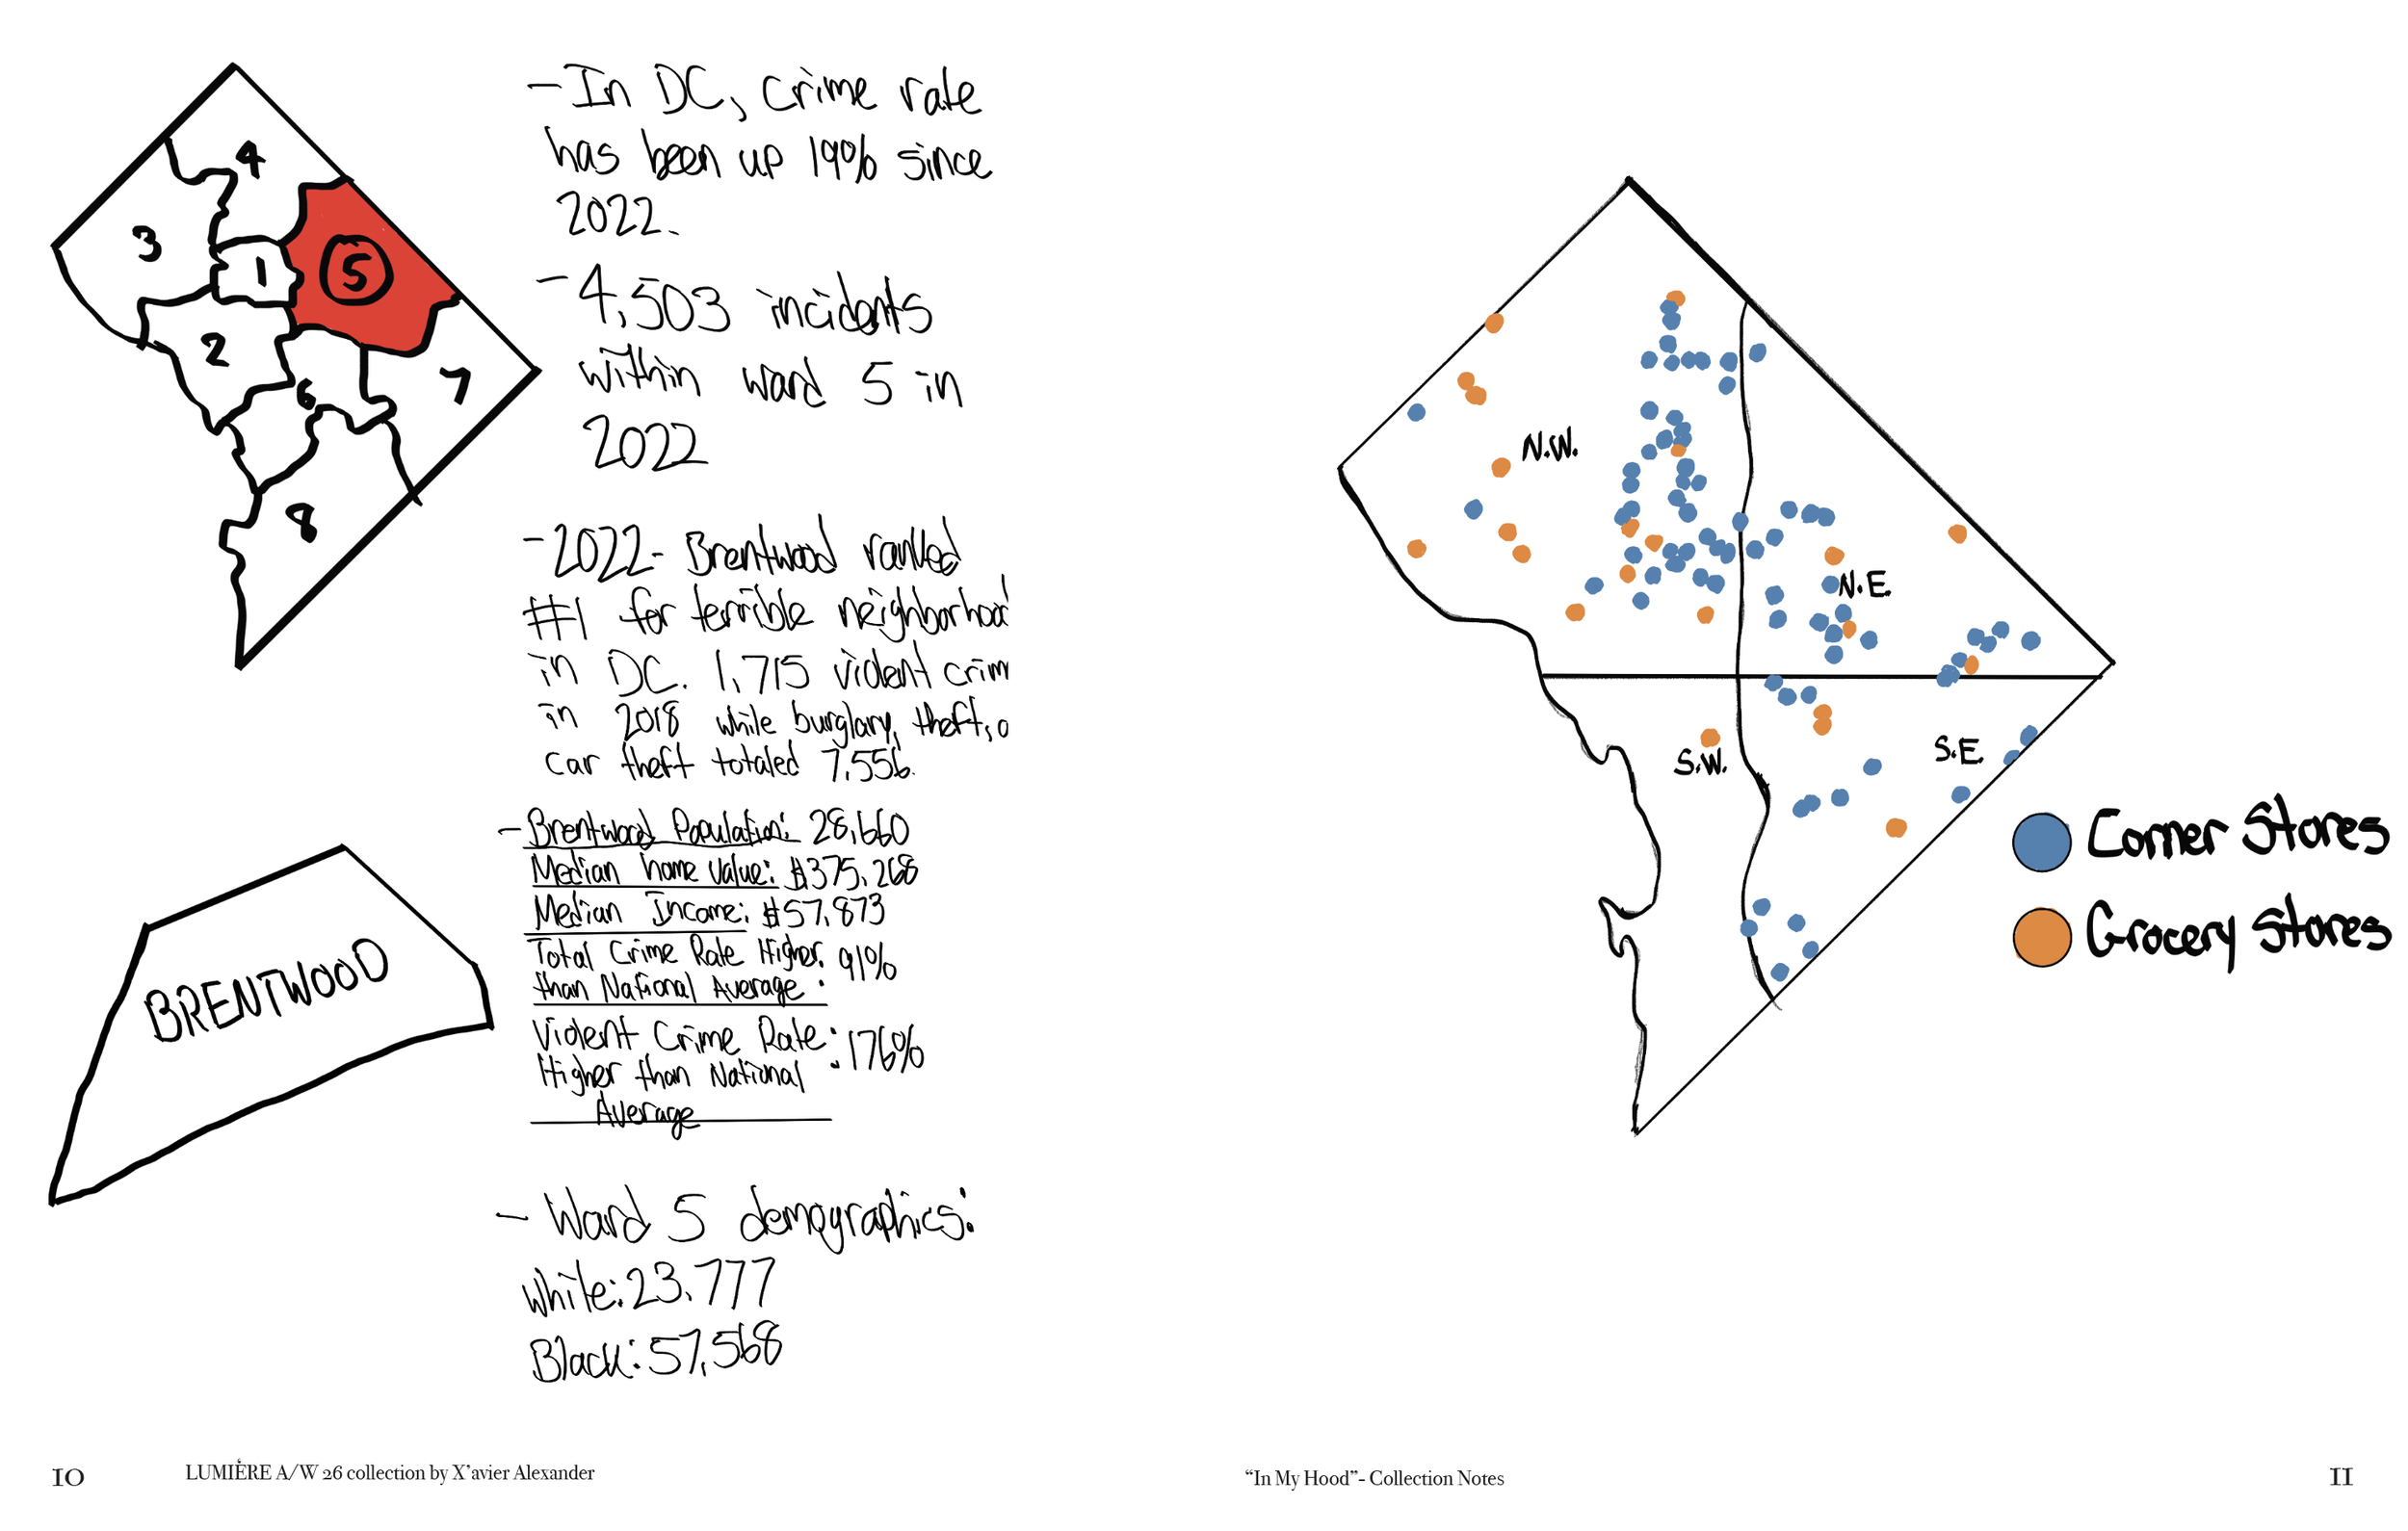 4
3
1
5
2
6
7
8
BRENTWOOD
- In DC, crime rate
has been up 19% since
2022.
- 4,503 incidents
within ward 5 in
2022
- 2022 - Brentwood ranked
#1 for terrible neighborhood
in DC. 1,715 violent crim
in 2018 while burglary, theft, o
car theft totaled 7,556.
- Brentwood Population: 28,660
Median home value: $375,268
Median Income: $57,873
Total Crime Rate Higher
than National Average: 91%
Violent Crime Rate
Higher than National
Average: 176%
- Ward 5 demographics:
White: 23,777
Black: 57,568
10
LUMIÈRE A/W 26 collection by X’avier Alexander
N.W.
N.E.
S.W.
S.E.
Corner Stores
Grocery Stores
“In My Hood”- Collection Notes
11